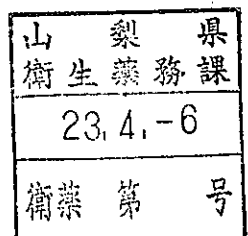 山梨県
衛生薬務課
23.4.-6
衛薬第 号